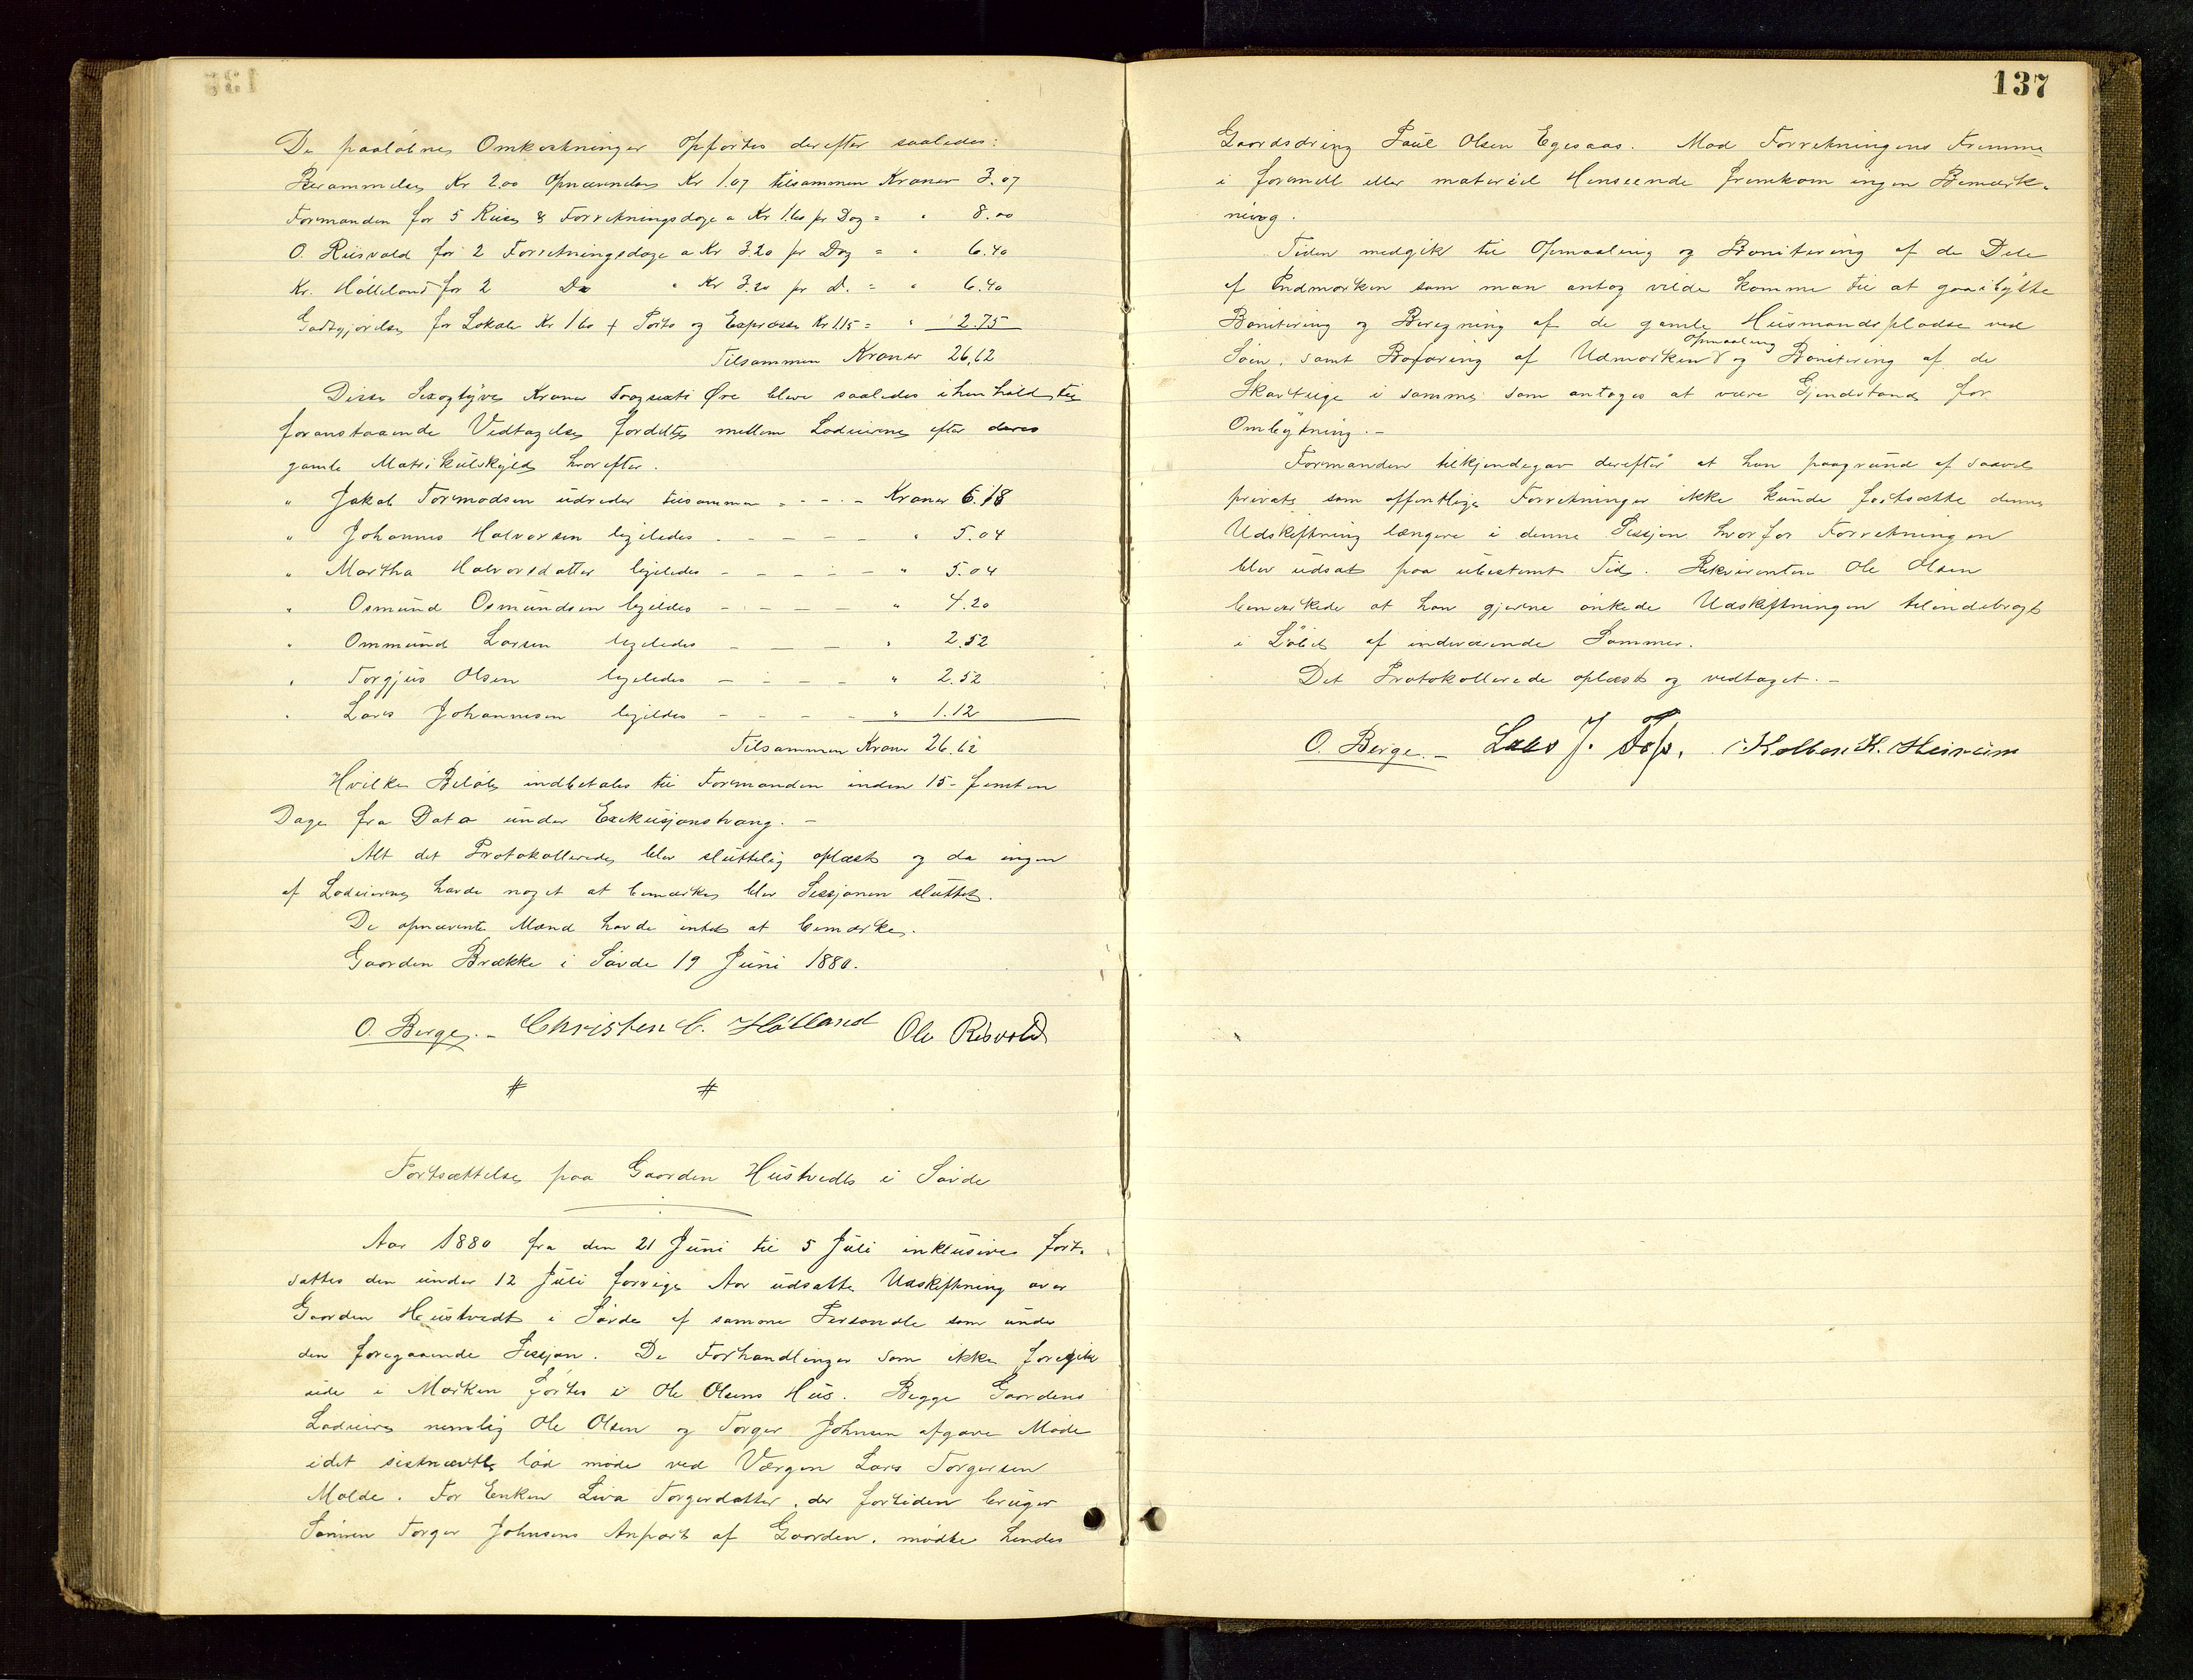 De paaløbne Omkostninger opførtes derefter saaledes:
Berammelse Kr 2.00 Opnævnelse Kr 1.07 tilsammen Kroner 3.07
Formanden for 5 Reise & Forretningsdage a Kr 1.60 pr Dag = " 8.00
O. Riisvold for 2 Forretningsdage a Kr 3.20 pr Dag = " 6.40
Kr. Hølleland for 2 Do " Kr 3.20 pr D. = " 6.40
Godtgjørelse for Lokale Kr 1.60 + Porto og Expresse Kr 1.15 = " 2.75
Tilsammen Kroner 26,62
Disse Sexogtyve Kroner Toogsexti Øre bleve saaledes i henhold til
foranstaaende Vedtagelse fordelte mellem Lodeierne efter deres
gamle Matrikulskyld hvorefter.
" Jakob Tormodsen udreder tilsammen = - - - Kroner 6.18
" Johannes Halvorsen ligeledes - - - - - " 5.04
" Martha Halvorsdatter ligeledes - - - - - " 5.04
" Osmund Osmundsen ligeledes - - - - " 4.20
" Ommund Larsen ligeledes - - - " 2.52
" Torgjus Olsen ligeledes - - - - " 2.52
" Lars Johannesen ligeledes - - - - " 1.12
Tilsammen Kroner 26.62
Hvilke Beløb indbetales til Formanden inden 15 - femten
Dage fra Dato under Exekusjonstvang. -
Alt det Protokollerede blev sluttelig oplæst og da ingen
af Lodeierne havde noget at bemærke, blev Sessjonen sluttet.
De opnævnte Mænd havde intet at bemærke.
Gaarden Brække i Søvde 19 Juni 1880.
O. Berge. - Christen C. Hølland Ole Risvold
# #
Fortsættelse paa Gaarden Hustvedt i Søvde
Aar 1880 fra den 21 Juni til 5 Juli inklusive fort-
sattes den under 12 Juli forrige Aar udsatte Udskiftning over
Gaarden Hustvedt i Søvde af samme Personale som under
den foregaaende Sessjon. De Forhandlinger som ikke foregik
ude i Marken førtes i Ole Olsens Hus. Begge Gaardens
Lodeiere nemlig Ole Olsen og Torger Johnsen afgave Møde
idet sistnævnte lod møde ved Værgen Lars Torgersen
Molde. For Enken Liva Torgerdatter, der fortiden bruger
Sønnen Torger Johnsens Anpart af Gaarden, mødte hendes
137
Gaardsdreng Paul Olsen Egesaas. Mod Forretningens Fremme
i formell eller materiel Henseende fremkom ingen Bemærk-
ning.
Tiden medgik til Opmaaling og Bonitering af de Dele
af Indmarken som man antog vilde komme til at gaa i bytte
Bonitering og Beregning af de gamle Husmandspladse ved
Søen, samt Befaring af Udmarken og Opmaaling Bonitering af de
Skovteige i samme som antoges at være Gjenstand for
Ombytning. -
Formanden tilkjendegav derefter at han paagrund af saavel
private som offentlige Forretninger ikke kunde fortsætte denne
Udskiftning længere i denne Sessjon hvorfor Forretningen
blev udsat paa ubestemt Tid. Rekvirenten Ole Olsen
bemærkede at han gjerne ønskede Udskiftningen tilendebragt
i Løbet af indeværende Sommer.
Det Protokollerede oplæst og vedtaget. -
O. Berge. - Lars J. K.